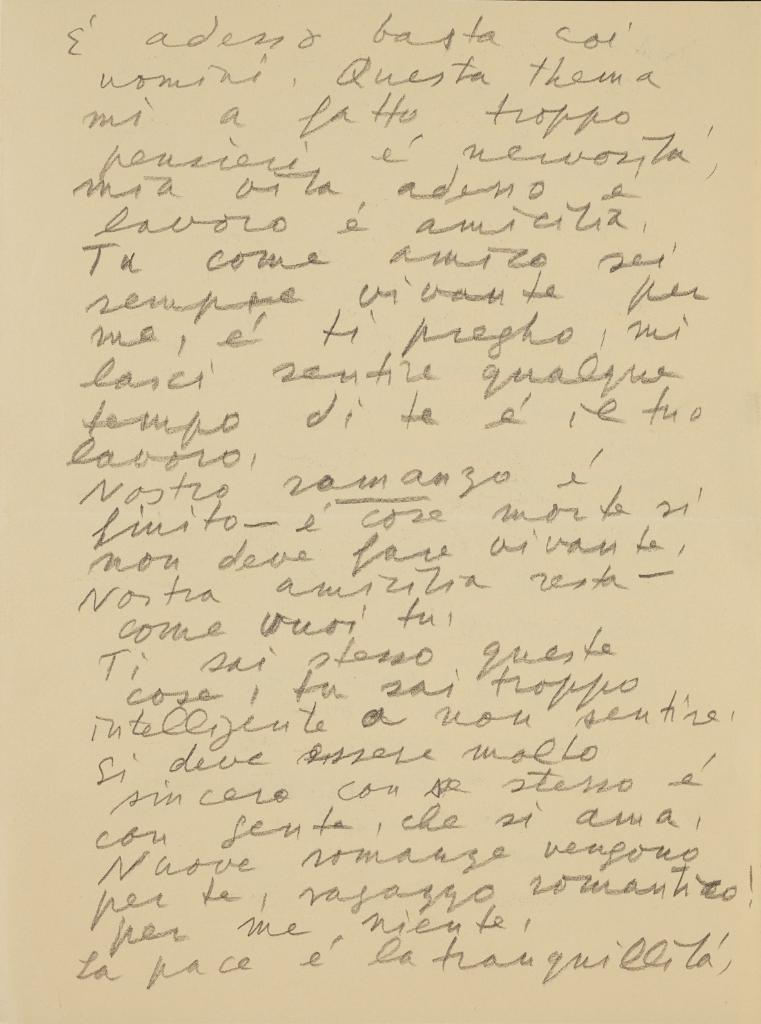 É adesso basta coi
uomini. Questa thema
mi a fatto troppo
pensieri é nervositá,
mia vita adesso é
lavoro é amicitia.
Tu come amico sei
sempre vivante per
me, é ti pregho, mi
lasci sentire qualque
tempo di te é il tuo
lavoro.
Nostro romanzo é
finito – é cose morte si
non deve fare vivante.
Nostra amicitia resta –
come vuoi tu.
Ti sai stesso queste
cose, tu sai troppo
intelligente a non sentire.
Si deve essere molto
sincero con se stesso é
con gente, che si ama.
Nuove romanze vengono
per te, ragazzo romantico!
per me niente.
La pace é la tranquillitá,